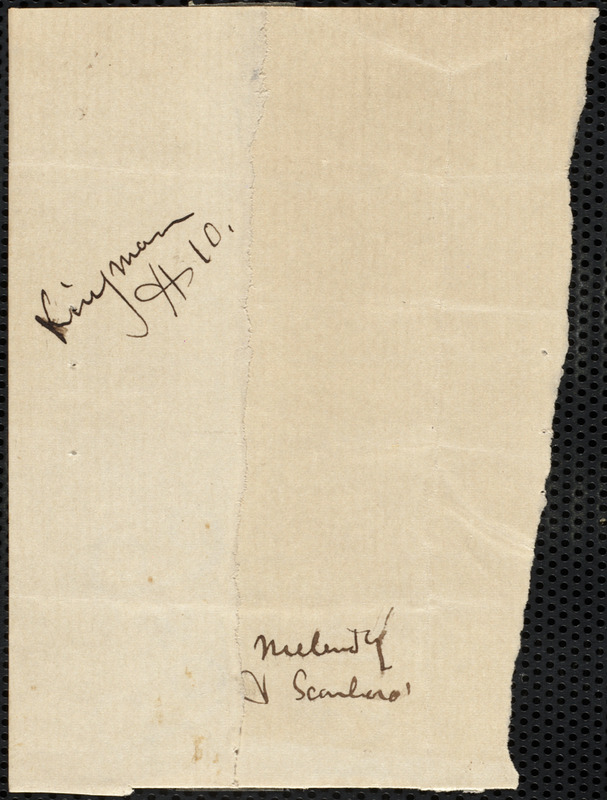 Kingman
H 10.
Melendy
& Scarboro'